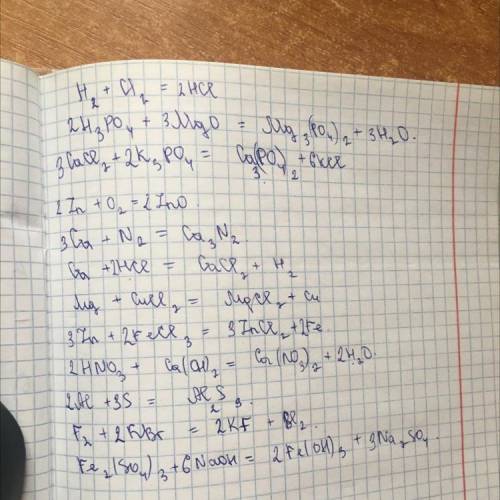 H₂ + Cl₂ = 2HCl
2H₃PO₄ + 3MgO = Mg₃(PO₄)₂ + 3H₂O.
3CaCl₂ + 2K₃PO₄ = Ca₃(PO₄)₂ + 6KCl
2Zn + O₂ = 2ZnO.
3Ca + N₂ = Ca₃N₂
Ca + 2HCl = CaCl₂ + H₂
Mg + CuCl₂ = MgCl₂ + Cu
3Zn + 2FeCl₃ = 3ZnCl₂ + 2Fe
2HNO₃ + Ca(OH)₂ = Ca(NO₃)₂ + 2H₂O.
2Al + 3S = Al₂S₃.
F₂ + 2KBr = 2KF + Br₂.
Fe₂(SO₄)₃ + 6NaOH = 2Fe(OH)₃ + 3Na₂SO₄.